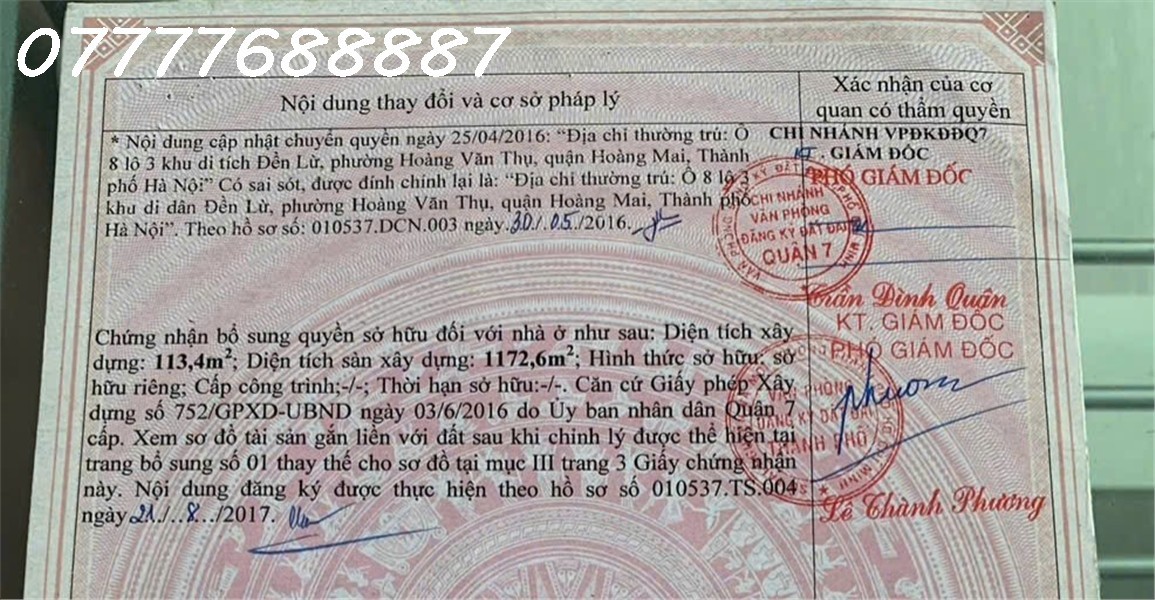 07777688887
Nội dung thay đổi và cơ sở pháp lý
Xác nhận của cơ
quan có thẩm quyền
* Nội dung cập nhật chuyển quyền ngày 25/04/2016: “Địa chỉ thường trú: Ô
8 lô 3 khu di tích Đền Lừ, phường Hoàng Văn Thụ, quận Hoàng Mai, Thành
phố Hà Nội” Có sai sót, được đính chính lại là: “Địa chỉ thường trú: Ô 8 lô 3
khu di dân Đền Lừ, phường Hoàng Văn Thụ, quận Hoàng Mai, Thành phố
Hà Nội”. Theo hồ sơ số: 010537.DCN.003 ngày.30./.05./2016.
CHI NHÁNH VPĐKĐĐQ7
KT. GIÁM ĐỐC
PHÓ GIÁM ĐỐC
CHI NHÁNH
VĂN PHÒNG
ĐĂNG KÝ ĐẤT ĐAI
QUẬN 7
Trần Đình Quân
Chứng nhận bổ sung quyền sở hữu đối với nhà ở như sau: Diện tích xây
dựng: 113,4m²; Diện tích sàn xây dựng: 1172,6m²; Hình thức sở hữu: sở
hữu riêng; Cấp công trình;-/-; Thời hạn sở hữu:-/-. Căn cứ Giấy phép Xây
dựng số 752/GPXD-UBND ngày 03/6/2016 do Ủy ban nhân dân Quận 7
cấp. Xem sơ đồ tài sản gắn liền với đất sau khi chỉnh lý được thể hiện tại
trang bổ sung số 01 thay thế cho sơ đồ tại mục III trang 3 Giấy chứng nhận
này. Nội dung đăng ký được thực hiện theo hồ sơ số 010537.TS.004
ngày 21./..8.../2017.
KT. GIÁM ĐỐC
PHÓ GIÁM ĐỐC
VĂN PHÒNG
ĐĂNG KÝ ĐẤT ĐAI
THÀNH PHỐ
Phương
Lê Thành Phương